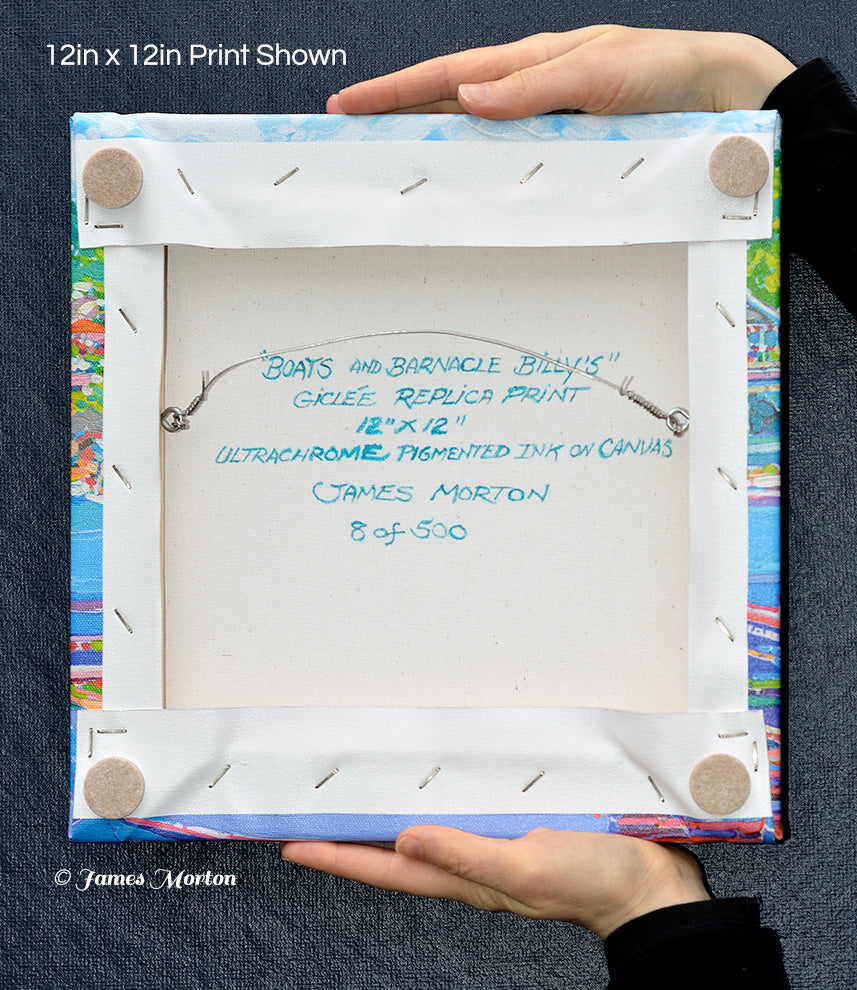 12in x 12in Print Shown
"BOATS AND BARNACLE BILLY'S"
GICLÉE REPLICA PRINT
12" X 12"
ULTRACHROME PIGMENTED INK ON CANVAS
JAMES MORTON
8 of 500
© James Morton